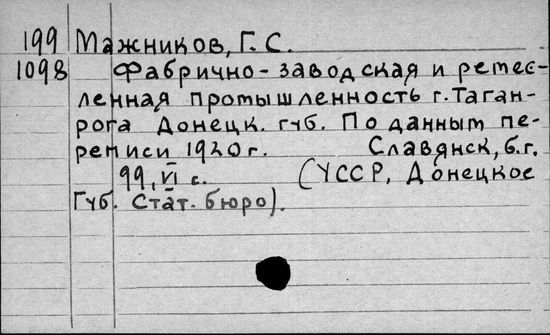 199 Мажников, Г. С.
1098 Фабрично-заводская и ремес-
ленная промышленность г. Таган-
рога Донецк. губ. По данным пе-
реписи 1920 г. Славянск, б.г.
99, VI с. (УССР, Донецкое
Губ. Стат. бюро).